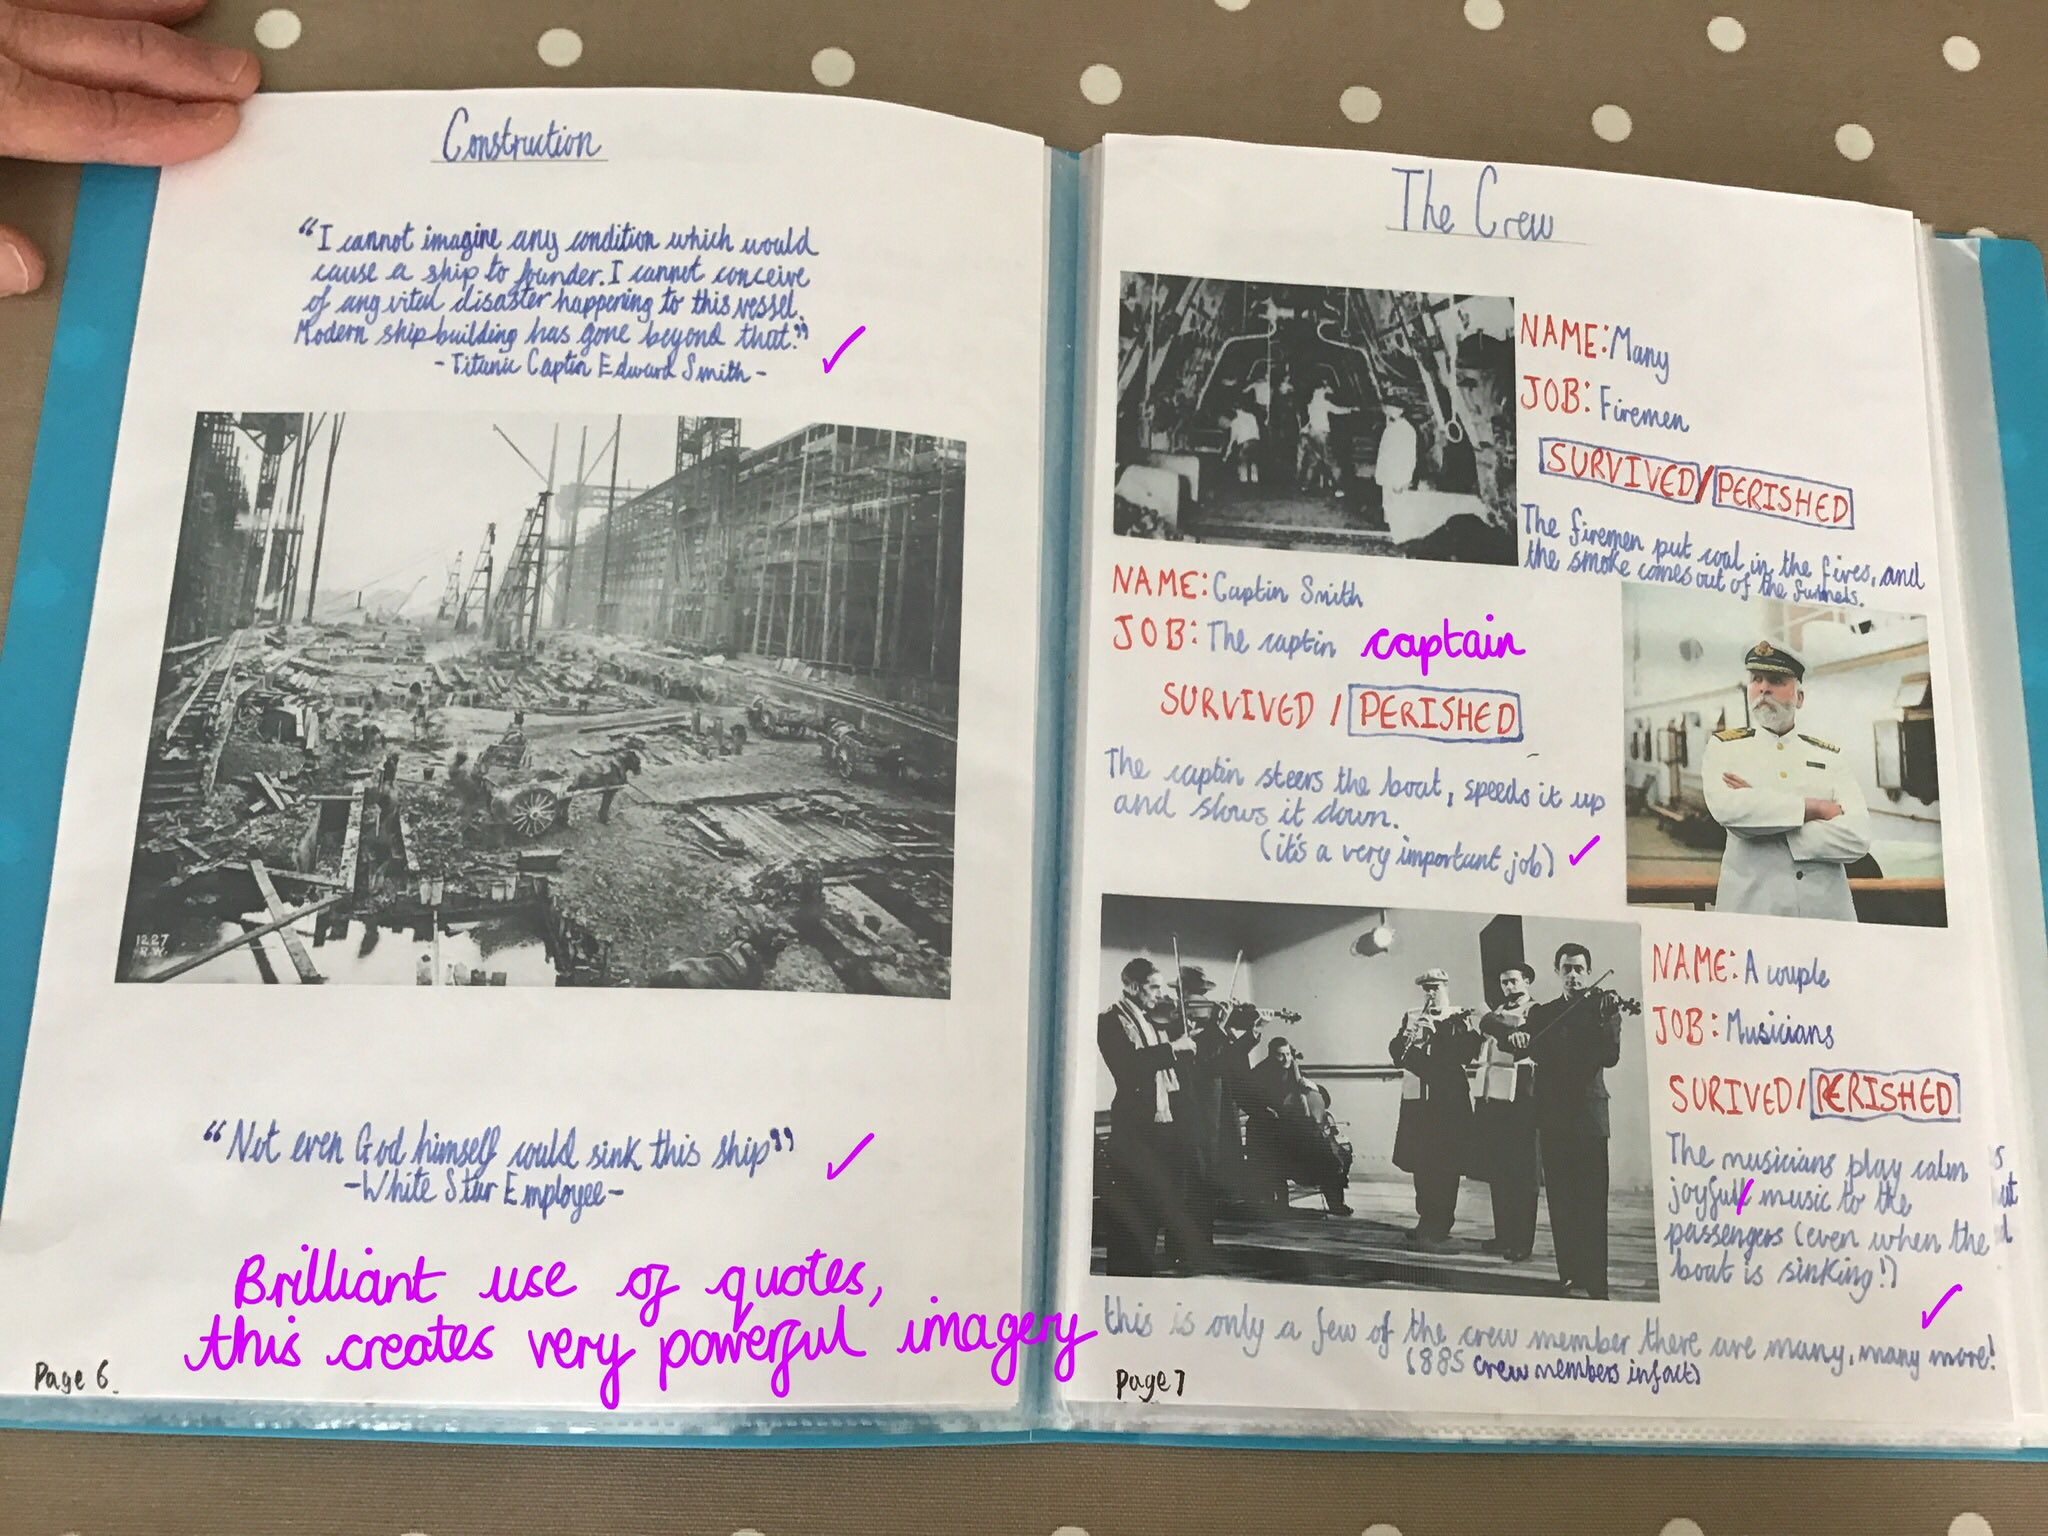 Construction
“I cannot imagine any condition which would
cause a ship to founder. I cannot conceive
of any vital disaster happening to this vessel.
Modern ship building has gone beyond that.”
- Titanic Captin Edward Smith -
1227
R.W.
“Not even God himself could sink this ship”
- White Star Employee -
Brilliant use of quotes,
this creates very powerful imagery
Page 6
The Crew
NAME: Many
JOB: Firemen
SURVIVED/PERISHED
The firemen put coal in the fires, and
the smoke comes out of the funnels.
NAME: Captin Smith
JOB: The captin captain
SURVIVED / PERISHED
The captin steers the boat, speeds it up
and slows it down.
(it's a very important job)
NAME: A couple
JOB: Musicians
SURIVED/PERISHED
The musicians play calm
joyfull music to the
passengers (even when the
boat is sinking!)
this is only a few of the crew member there are many, many more!
(885 crew members infact)
Page 7